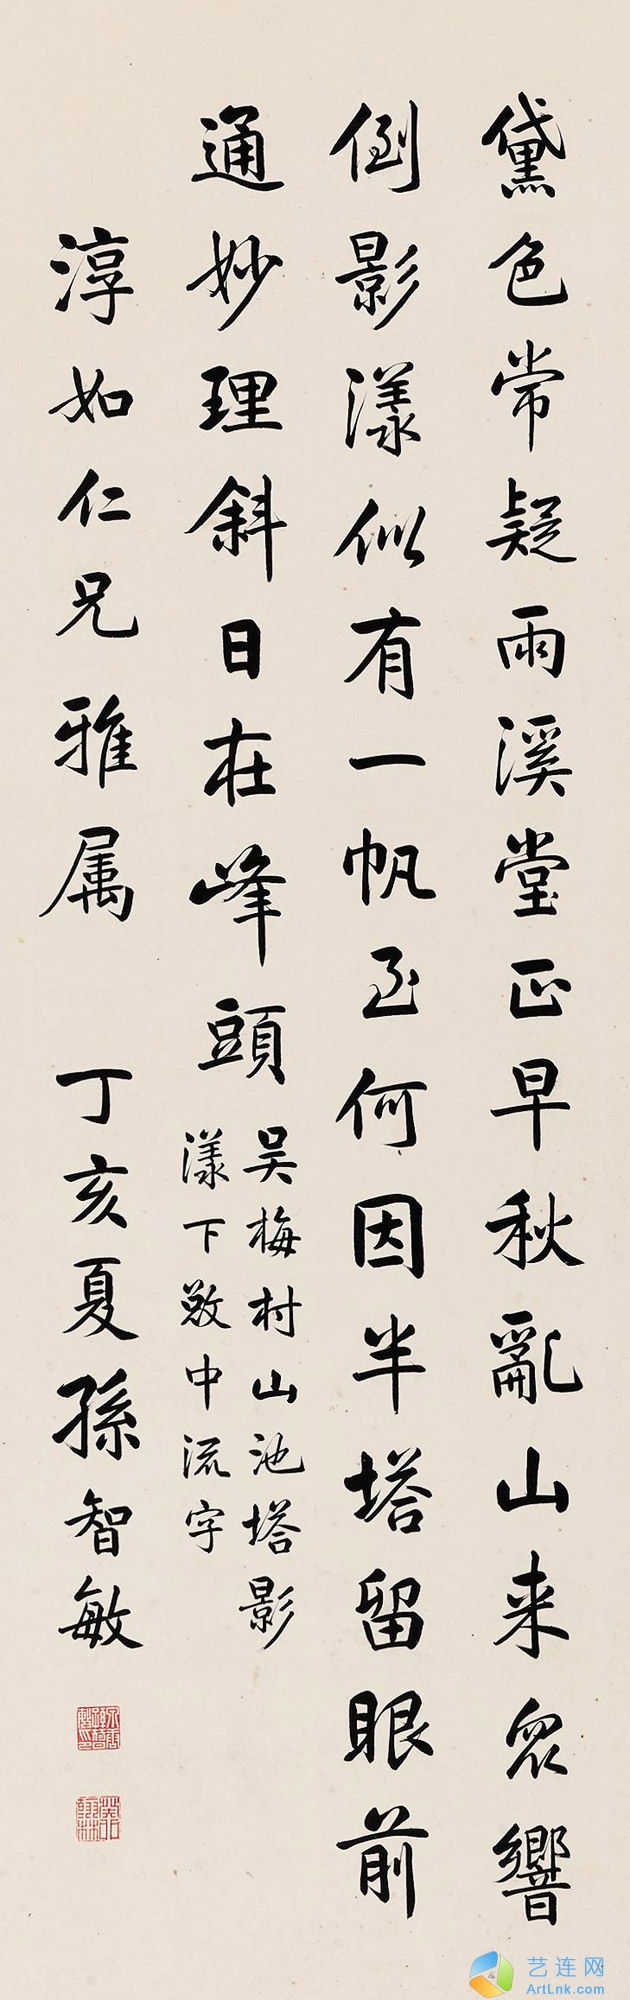 黛色常疑雨溪堂正早秋亂山来眾響
倒影漾似有一帆至何因半塔留眼前
通妙理斜日在峰頭
吴梅村山池塔影
漾下敚中流字
淳如仁兄雅属
丁亥夏孫智敏
艺连网
ArtLnk.com